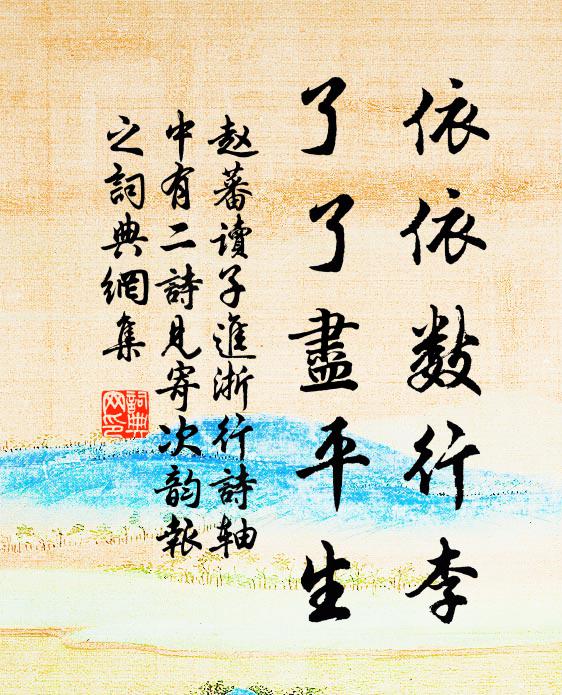 依依数行李
了了盡平生
赵蕃读子進浙行詩轴
中有二詩見寄次韵報
之詞典網集
詞典
网印